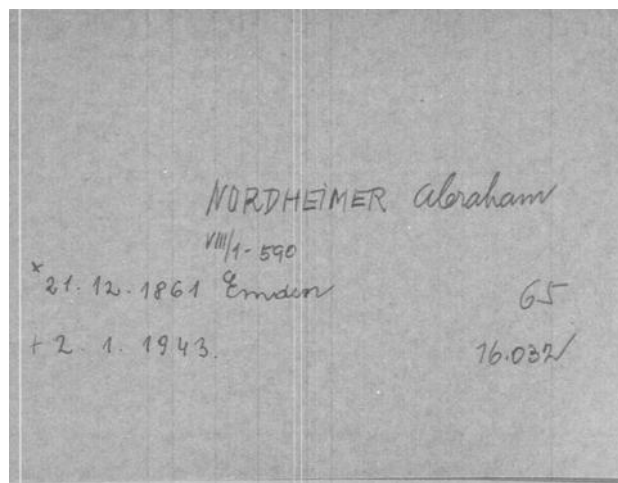 NORDHEIMER Abraham
VIII/1-590
* 21. 12. 1861 Emden 65
+ 2. 1. 1943. 16.032/